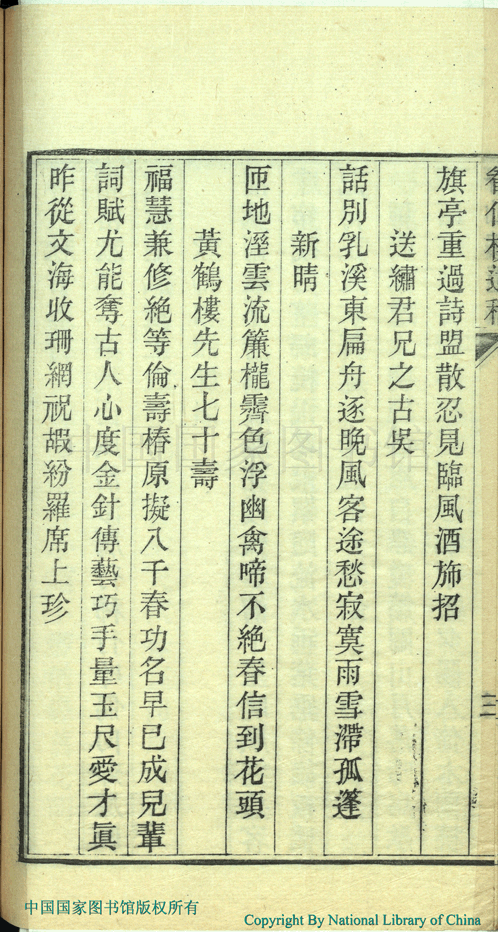 三
旗亭重過詩盟散忍見臨風酒旆招
送繡君兄之古吳
話別乳溪東扁舟逐晚風客途愁寂寞雨雪滯孤篷
新晴
匝地溼雲流簾櫳霽色浮幽禽啼不絕春信到花頭
黃鶴樓先生七十壽
福慧兼修絕等倫壽椿原擬八千春功名早已成兒輩
詞賦尤能奪古人心度金針傳藝巧手量玉尺愛才眞
昨從文海收珊網祝嘏紛羅席上珍
中国国家图书馆版权所有
Copyright By National Library of China